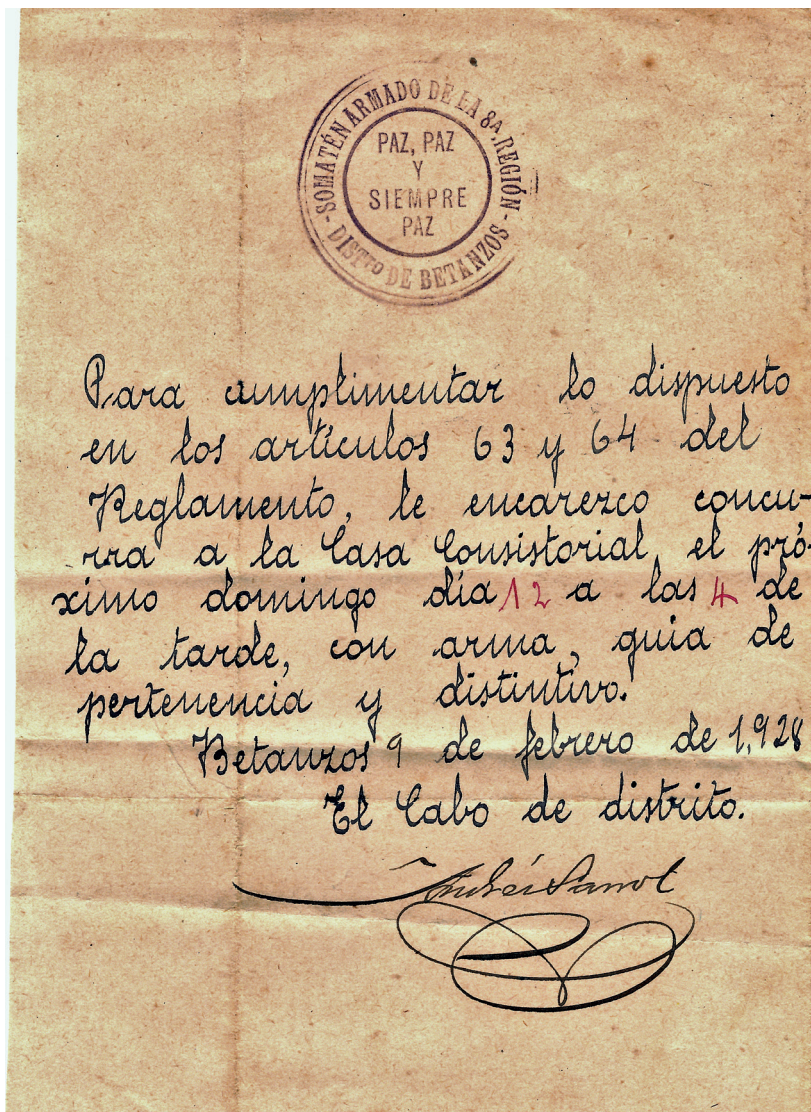 SOMATÉN ARMADO DE LA 8ª REGIÓN
PAZ, PAZ
Y
SIEMPRE
PAZ
- DISTTO DE BETANZOS -
Para cumplimentar lo dispuesto
en los artículos 63 y 64 del
Reglamento, le encarezco concu-
rra a la Casa Consistorial el pró-
ximo domingo día 12 a las 4 de
la tarde, con arma, guia de
pertenencia y distintivo.
Betanzos 9 de febrero de 1,928
El Cabo de distrito.